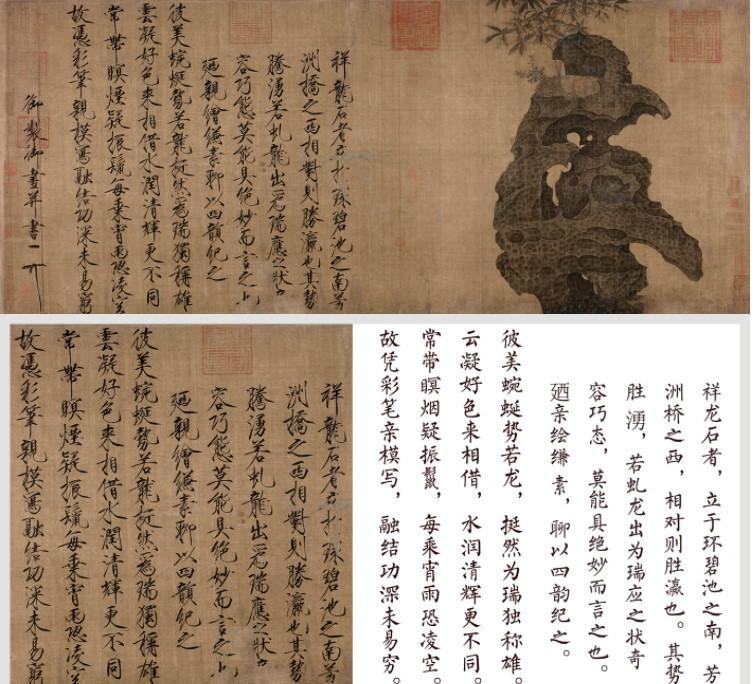 祥龍石者立於環碧池之南芳
洲橋之西相對則勝瀛也其勢
騰湧若虬龍出爲瑞應之狀奇
容巧態莫能具絕妙而言之也
廼親繪縑素聊以四韻紀之
彼美蜿蜒勢若龍挺然爲瑞獨稱雄
雲凝好色來相借水潤清輝更不同
常帶瞑煙疑振鬣每乘宵雨恐凌空
故憑彩筆親模寫融結功深未易窮
御製御畫并書
祥龙石者，立于环碧池之南，芳
洲桥之西，相对则胜瀛也。其势
胜湧，若虬龙出为瑞应之状奇
容巧态，莫能具绝妙而言之也。
廼亲绘缣素，聊以四韵纪之。
彼美蜿蜒势若龙，挺然为瑞独称雄。
云凝好色来相借，水润清辉更不同。
常带瞑烟疑振鬣，每乘宵雨恐凌空。
故凭彩笔亲模写，融结功深未易穷。
祥龍石者立於環碧池之南芳
洲橋之西相對則勝瀛也其勢
騰湧若虬龍出爲瑞應之狀奇
容巧態莫能具絕妙而言之也
廼親繪縑素聊以四韻紀之
彼美蜿蜒勢若龍挺然爲瑞獨稱雄
雲凝好色來相借水潤清輝更不同
常帶瞑煙疑振鬣每乘宵雨恐凌空
故憑彩筆親模寫融結功深未易窮